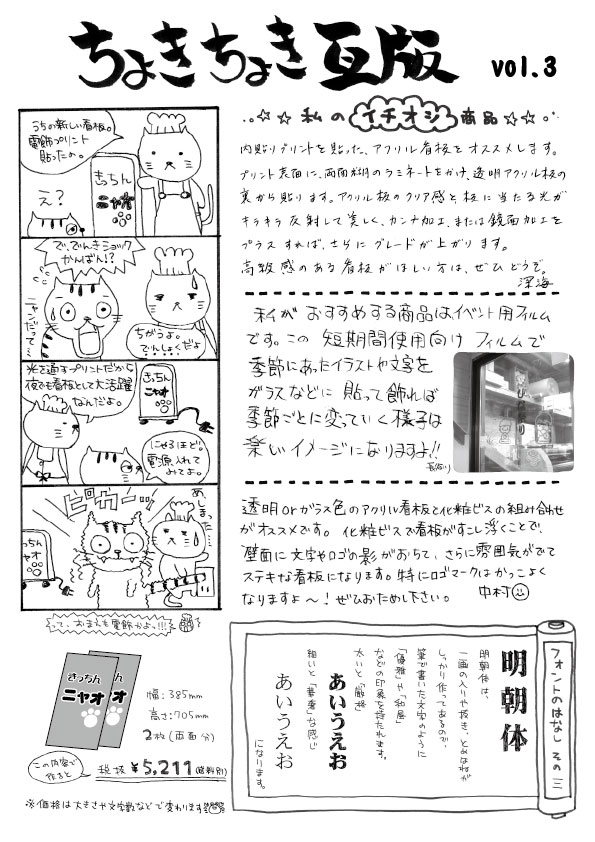 ちょきちょき瓦版 vol.3
うちの新しい看板。
電飾プリント
貼ったよ。
きっちん
ニャオ
え?
で、でんきショック
かんばん!?
ニャンだって…
ちがうよ。
でんしょくだよ
光を通すプリントだから
夜でも看板として大活躍
なんだよ。
きっちん
ニャオ
にゃるほど。
電源入れて
みてよ。
ビリビリ
あ、
しまった…
っちん
ャオ
って、おまえも電飾かよっ!!!
きっちん
ニャオ
ん
オ
幅:385mm
高さ:705mm
2枚(両面分)
この内容で
作ると
税抜 ¥5,211(送料別)
※価格は大きさや文字数などで変わります
☆☆私のイチオシ商品☆☆
内貼りプリントを貼った、アクリル看板をオススメします。
プリント表面に、両面透明のラミネートをかけ、透明アクリル板の
裏から貼ります。アクリル板のクリア感と、板に当たる光が
キラキラ反射して美しく、カンナ加工、または鏡面加工を
プラスすれば、さらにグレードが上がります。
高級感のある看板がほしい方は、ぜひどうぞ。
深海
私がおすすめする商品はイベント用フィルム
です。この短期間使用向けフィルムで
季節にあったイラストや文字を
ガラスなどに貼って飾れば
季節ごとに変っていく様子は
楽しいイメージになりますよ!!
透明orガラス色のアクリル看板と化粧ビスの組み合わせ
がオススメです。化粧ビスで看板がすこし浮くことで、
壁面に文字やロゴの影がおちて、さらに雰囲気がでて
ステキな看板になります。特にロゴマークはかっこよく
なりますよ〜!ぜひおためし下さい。 中村
フォントのはなし その三
明朝体
明朝体は、
一画の入りや抜き、とめはねが
しっかり作ってあるので、
筆で書いた文字のように
「優雅」や「和風」
などの印象を持たれます。
太いと「厳格」
あいうえお
細いと「華奢」な感じ
あいうえお
になります。